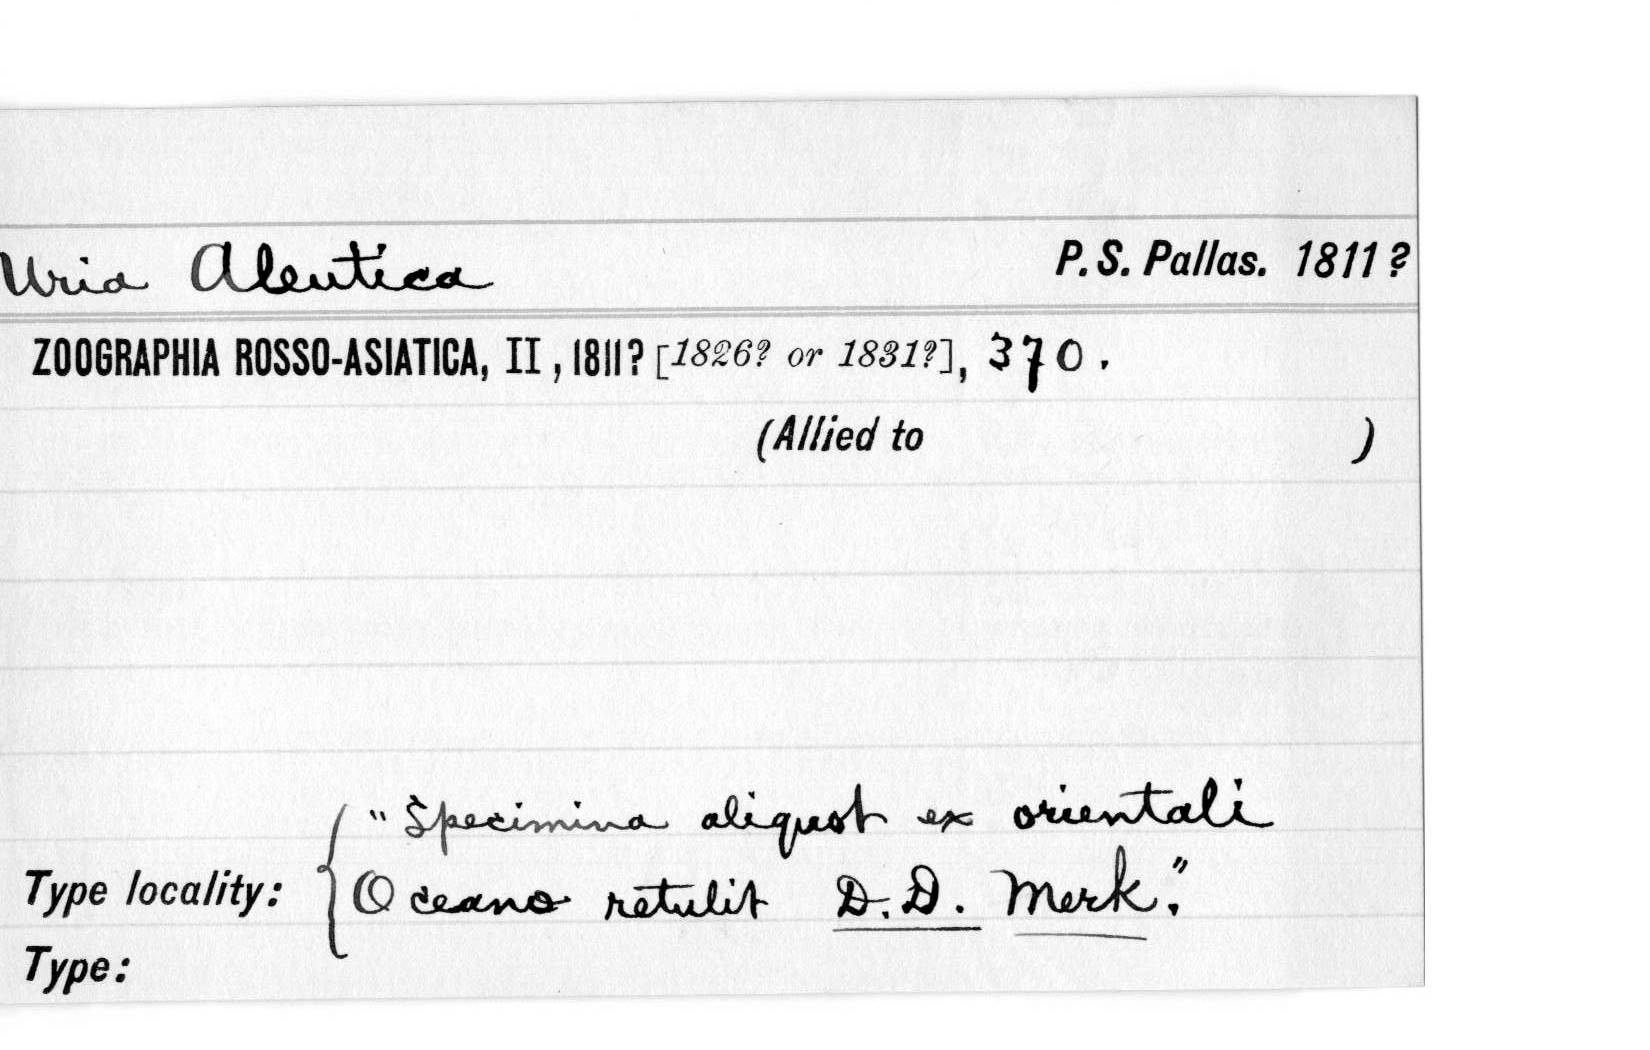 Uria Aleutica P. S. Pallas. 1811?
ZOOGRAPHIA ROSSO-ASIATICA, II, 1811? [1826? or 1831?], 370.
(Allied to )
"Specimina aliquot ex orientali
Type locality: Oceano retulit D.D. Merk."
Type: